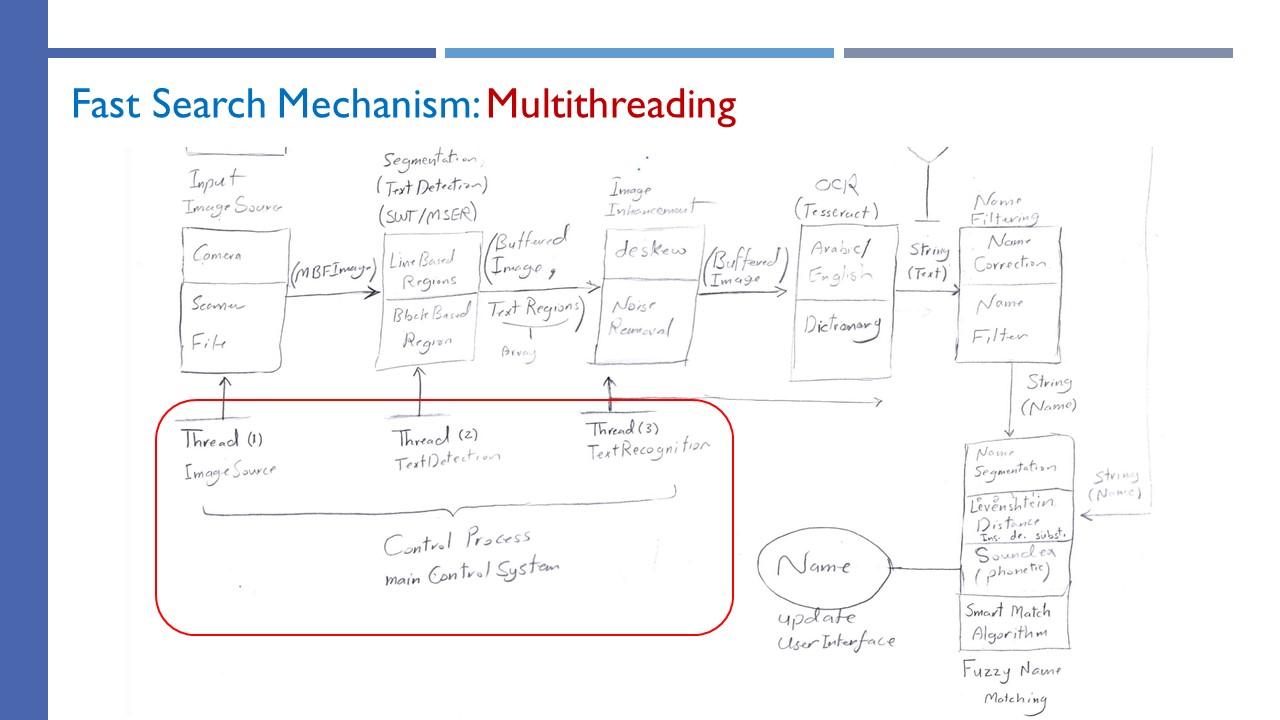 Fast Search Mechanism: Multithreading
Input
Image Source
Camera
Scanner
File
(MBFImage)
Segmentation,
(Text Detection)
(SWT/MSER)
Line Based
Regions
Block Based
Region
(Buffered
Image,
Text Regions)
Array
Image
Inhancement
deskew
Noise
Removal
(Buffered
Image)
OCR
(Tesseract)
Arabic/
English
Dictionary
String
(Text)
Name
Filtering
Name
Correction
Name
Filter
String
(Name)
Thread (1)
Image Source
Thread (2)
Text Detection
Thread (3)
Text Recognition
Control Process
main Control System
Name
Segmentation
Levenshtein
Distance
Ins. de. subst.
Soundex
(phonetic)
Smart Match
Algorithm
Fuzzy Name
Matching
String
(Name)
Name
update
User Interface